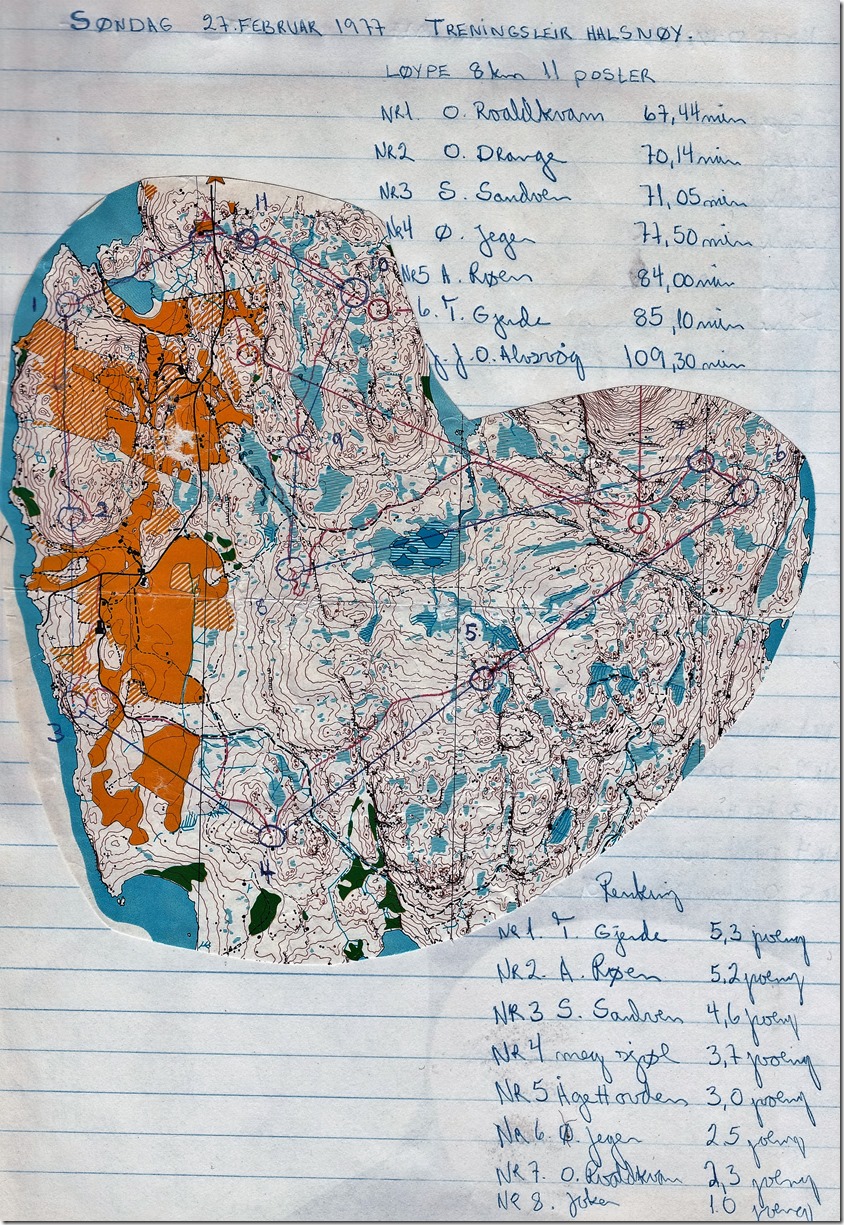 SØNDAG 27. FEBRUAR 1977 TRENINGSLEIR HALSNØY.
LØYPE 8 km 11 POSTER
NR1. O. Roaldkvam 67,44 min
NR2 O. Drange 70,14 min
NR3 S. Sandven 71,05 min
NR4 Ø. Jeger 77,50 min
NR5 A. Røen 84,00 min
6. T. Gjerde 85,10 min
J.O. Alvsvåg 109,30 min
11
10
1
7
6
2
9
8
5
3
4
Ranking
NR 1. T. Gjerde 5,3 poeng
NR 2. A. Røen 5,2 poeng
NR 3 S. Sandven 4,6 poeng
NR 4 meg sjøl 3,7 poeng
NR 5 Åge Hovden 3,0 poeng
NR 6. Ø. Jeger 2,5 poeng
NR 7. O. Roaldkvam 2,3 poeng
NR 8. Joker 1.0 poeng